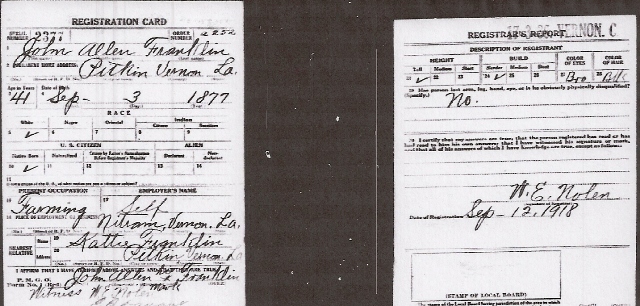 REGISTRATION CARD
SERIAL NUMBER
ORDER NUMBER 2252
1 John Allen Franklin
2 PERMANENT HOME ADDRESS: Pitkin Vernon La.
Age in Years
Date of Birth
41 Sep- 3 1877
RACE
White Negro Oriental Indian
Citizen
5 ✓ 6 7 8 9
U. S. CITIZEN ALIEN
Native Born Naturalized Citizen by Father's Naturalization Before Registrant's Majority Declarant Non-declarant
10 ✓ 11 12 13 14
15
PRESENT OCCUPATION EMPLOYER'S NAME
16 Farming 17 Self
18 PLACE OF EMPLOYMENT OR BUSINESS: Vernon, La.
NEAREST RELATIVE
Name 19 Franklin
Address 20 Pitkin Vernon La
I AFFIRM THAT I HAVE VERIFIED ABOVE ANSWERS AND THAT THEY ARE TRUE
P. M. G. O.
Form No. 1 John Allen Franklin
Witness mark
VERNON. C
REGISTRAR'S REPORT
DESCRIPTION OF REGISTRANT
HEIGHT BUILD COLOR OF EYES COLOR OF HAIR
Tall Medium Short Slender Medium Stout
21 ✓ 22 23 24 ✓ 25 26 27 Bro 28 Blk
29 Has person lost arm, leg, hand, eye, or is he obviously physically disqualified?
(Specify.) No.
30 I certify that my answers are true; that the person registered has read or has had read to him his own answers; that I have witnessed his signature or mark, and that all of his answers of which I have knowledge are true, except as follows:
W. E. Nolen
Date of Registration Sep - 12, 1918
(STAMP OF LOCAL BOARD)